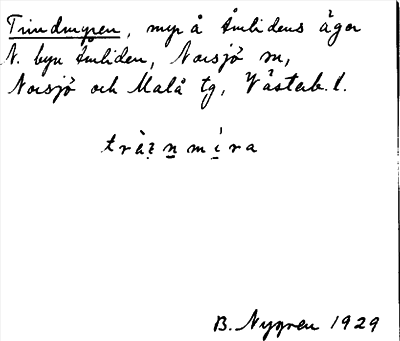 Trindmyren, myr å Åmlidens ägor
N. byn Åmliden, Norsjö sn,
Norsjö och Malå tg, Västerb. l.
B. Nygren 1929